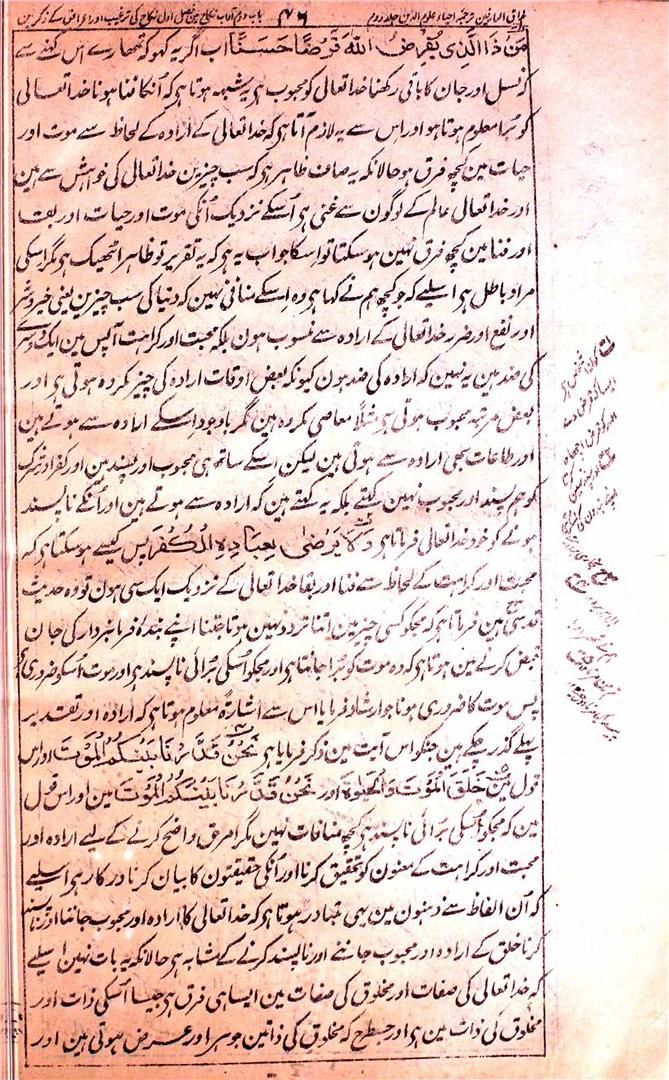 مذاق العارفین ترجمہ احیاء علوم الدین جلد دوم ۴۶ باب دوم آداب نکاح مین فصل اول نکاح کی ترغیب اور اعراض کے ذکر مین
مَن ذَا الَّذِی یُقْرِضُ اللہَ قَرْضًا حَسَنًا اب اگر یہ کہو کہ تمھارے اس کہنے سے
کہ نسل اور جان کا باقی رکھنا خدا تعالی کو محبوب ہے یہ شبہہ ہوتا ہے کہ انکا فنا ہونا خدا تعالی
کو برا معلوم ہوتا ہو اور اس سے یہ لازم آتا ہے کہ خدا تعالی کے ارادہ کے لحاظ سے موت اور
حیات مین کچھ فرق ہو حالانکہ یہ صاف ظاہر ہے کہ سب چیزین خدا تعالی کی خواہش سے ہین
اور خدا تعالی عالم کے لوگون سے غنی ہے اسکے نزدیک انکی موت اور حیات اور بقا
اور فنا مین کچھ فرق نہین ہو سکتا تو اسکا جواب یہ ہے کہ یہ تقریر تو ظاہرا ٹھیک ہے مگر اسکی
مراد باطل ہے اسلیے کہ جو کچھ ہم نے کہا ہے وہ اسکے منافی نہین کہ دنیا کی سب چیزین یعنی خیر و شر
اور نفع اور ضرر خدا تعالی کے ارادہ سے منسوب ہون بلکہ محبت اور کراہت آپس مین ایک دوسرے
کی ضد ہین یہ نہین کہ ارادہ کی ضد ہون کیونکہ بعض اوقات ارادہ کی چیز مکروہ ہوتی ہے اور
بعض مرتبہ محبوب ہوتی ہے مثلاً معاصی مکروہ ہین مگر باوجود اسکے ارادہ سے ہوتے ہین
اور طاعات بھی ارادہ سے ہوتی ہین لیکن اسکے ساتھ ہی محبوب اور پسند ہین اور کفر اور شرک
کو ہم پسند اور محبوب نہین کہتے بلکہ یہ کہتے ہین کہ ارادہ سے ہوتے ہین اور انکے ناپسند
ہونے کو خود خدا تعالی فرماتا ہے وَلَا یَرْضٰی لِعِبَادِہِ الْکُفْرَ پس کیسے ہو سکتا ہے کہ
محبت اور کراہت کے لحاظ سے فنا اور بقا خدا تعالی کے نزدیک ایک سی ہون تو وہ حدیث
قدسی مین فرماتا ہے کہ مجکو کسی چیز مین اتنا تردد نہین ہوتا جتنا اپنے بندہ فرمانبردار کی جان
قبض کرنے مین ہوتا ہے کہ وہ موت کو برا جانتا ہے اور مجکو اسکی برائی ناپسند ہے اور موت اسکو ضروری ہے
پس موت کا ضروری ہونا جو ارشاد فرمایا اس سے اشارۃً معلوم ہوتا ہے کہ ارادہ اور تقدیر
پہلے گذر چکے ہین جنکو اس آیت مین ذکر فرمایا ہے نَحْنُ قَدَّرْنَا بَیْنَکُمُ الْمَوْتَ اور اس
قول مین خَلَقَ الْمَوْتَ وَالْحَیٰوۃَ اور نَحْنُ قَدَّرْنَا بَیْنَکُمُ الْمَوْتَ مین اور اس قول
مین کہ مجکو اسکی برائی ناپسند ہے کچھ منافات نہین مگر امر حق واضح کرنے کے لیے ارادہ اور
محبت اور کراہت کے معنون کو تحقیق کرنا اور انکی حقیقتون کا بیان کرنا درکار ہے اسلیے
کہ ان الفاظ سے ذہنون مین یہی متبادر ہوتا ہے کہ خدا تعالی کا ارادہ اور محبوب جاننا اور ناپسند
کرنا خلق کے ارادہ اور محبوب جاننے اور ناپسند کرنے کے مشابہ ہے حالانکہ یہ بات نہین اسلیے
کہ خدا تعالی کی صفات اور مخلوق کی صفات مین ایسا ہی فرق ہے جیسا اسکی ذات اور
مخلوق کی ذات مین ہے اور جسطرح کہ مخلوق کی ذاتین جوہر اور عرض ہوتی ہین اور
کون شخص ہے